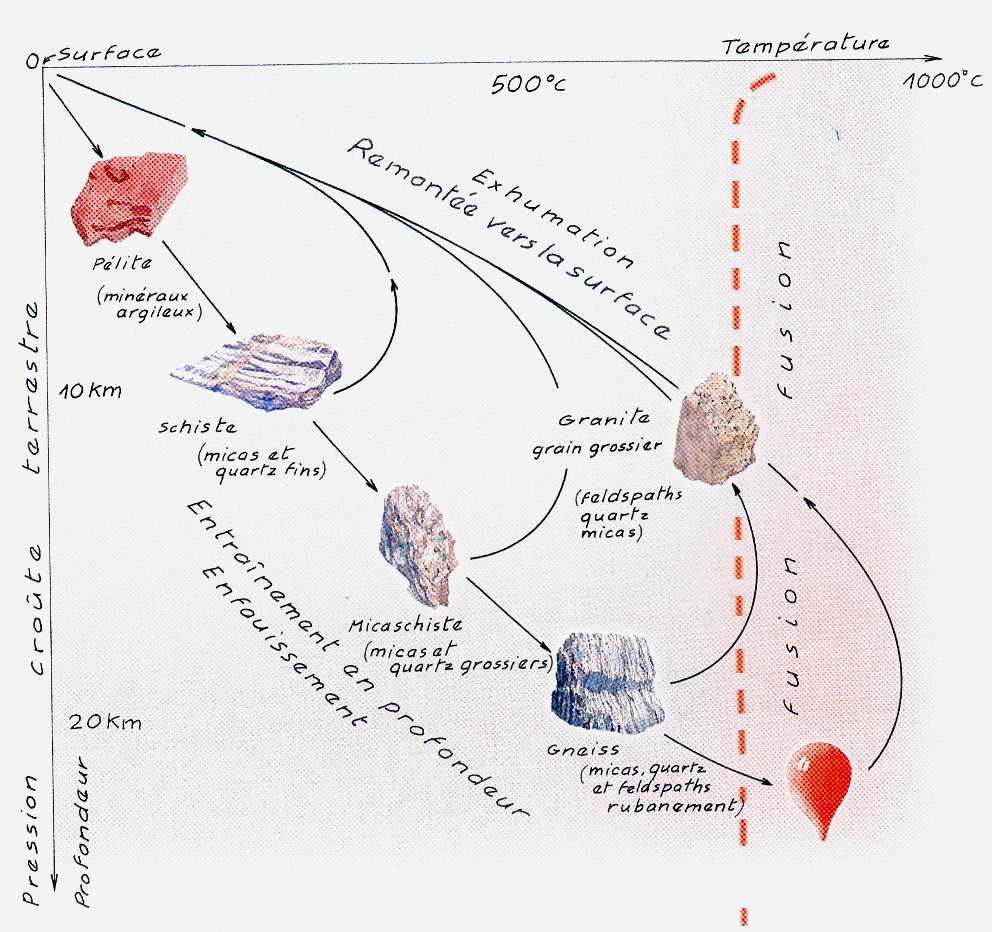 Surface
Température
0
500°c
1000°c
Exhumation
Remontée vers la surface
Pélite
(minéraux
argileux)
fusion
croûte terrestre
10 Km
Schiste
(micas et
quartz fins)
Granite
grain grossier
(feldspaths
quartz
micas)
Entraînement en profondeur
Enfouissement
Micaschiste
(micas et
quartz grossiers)
fusion
20 Km
Gneiss
(micas, quartz
et feldspaths
rubanement)
Pression
Profondeur